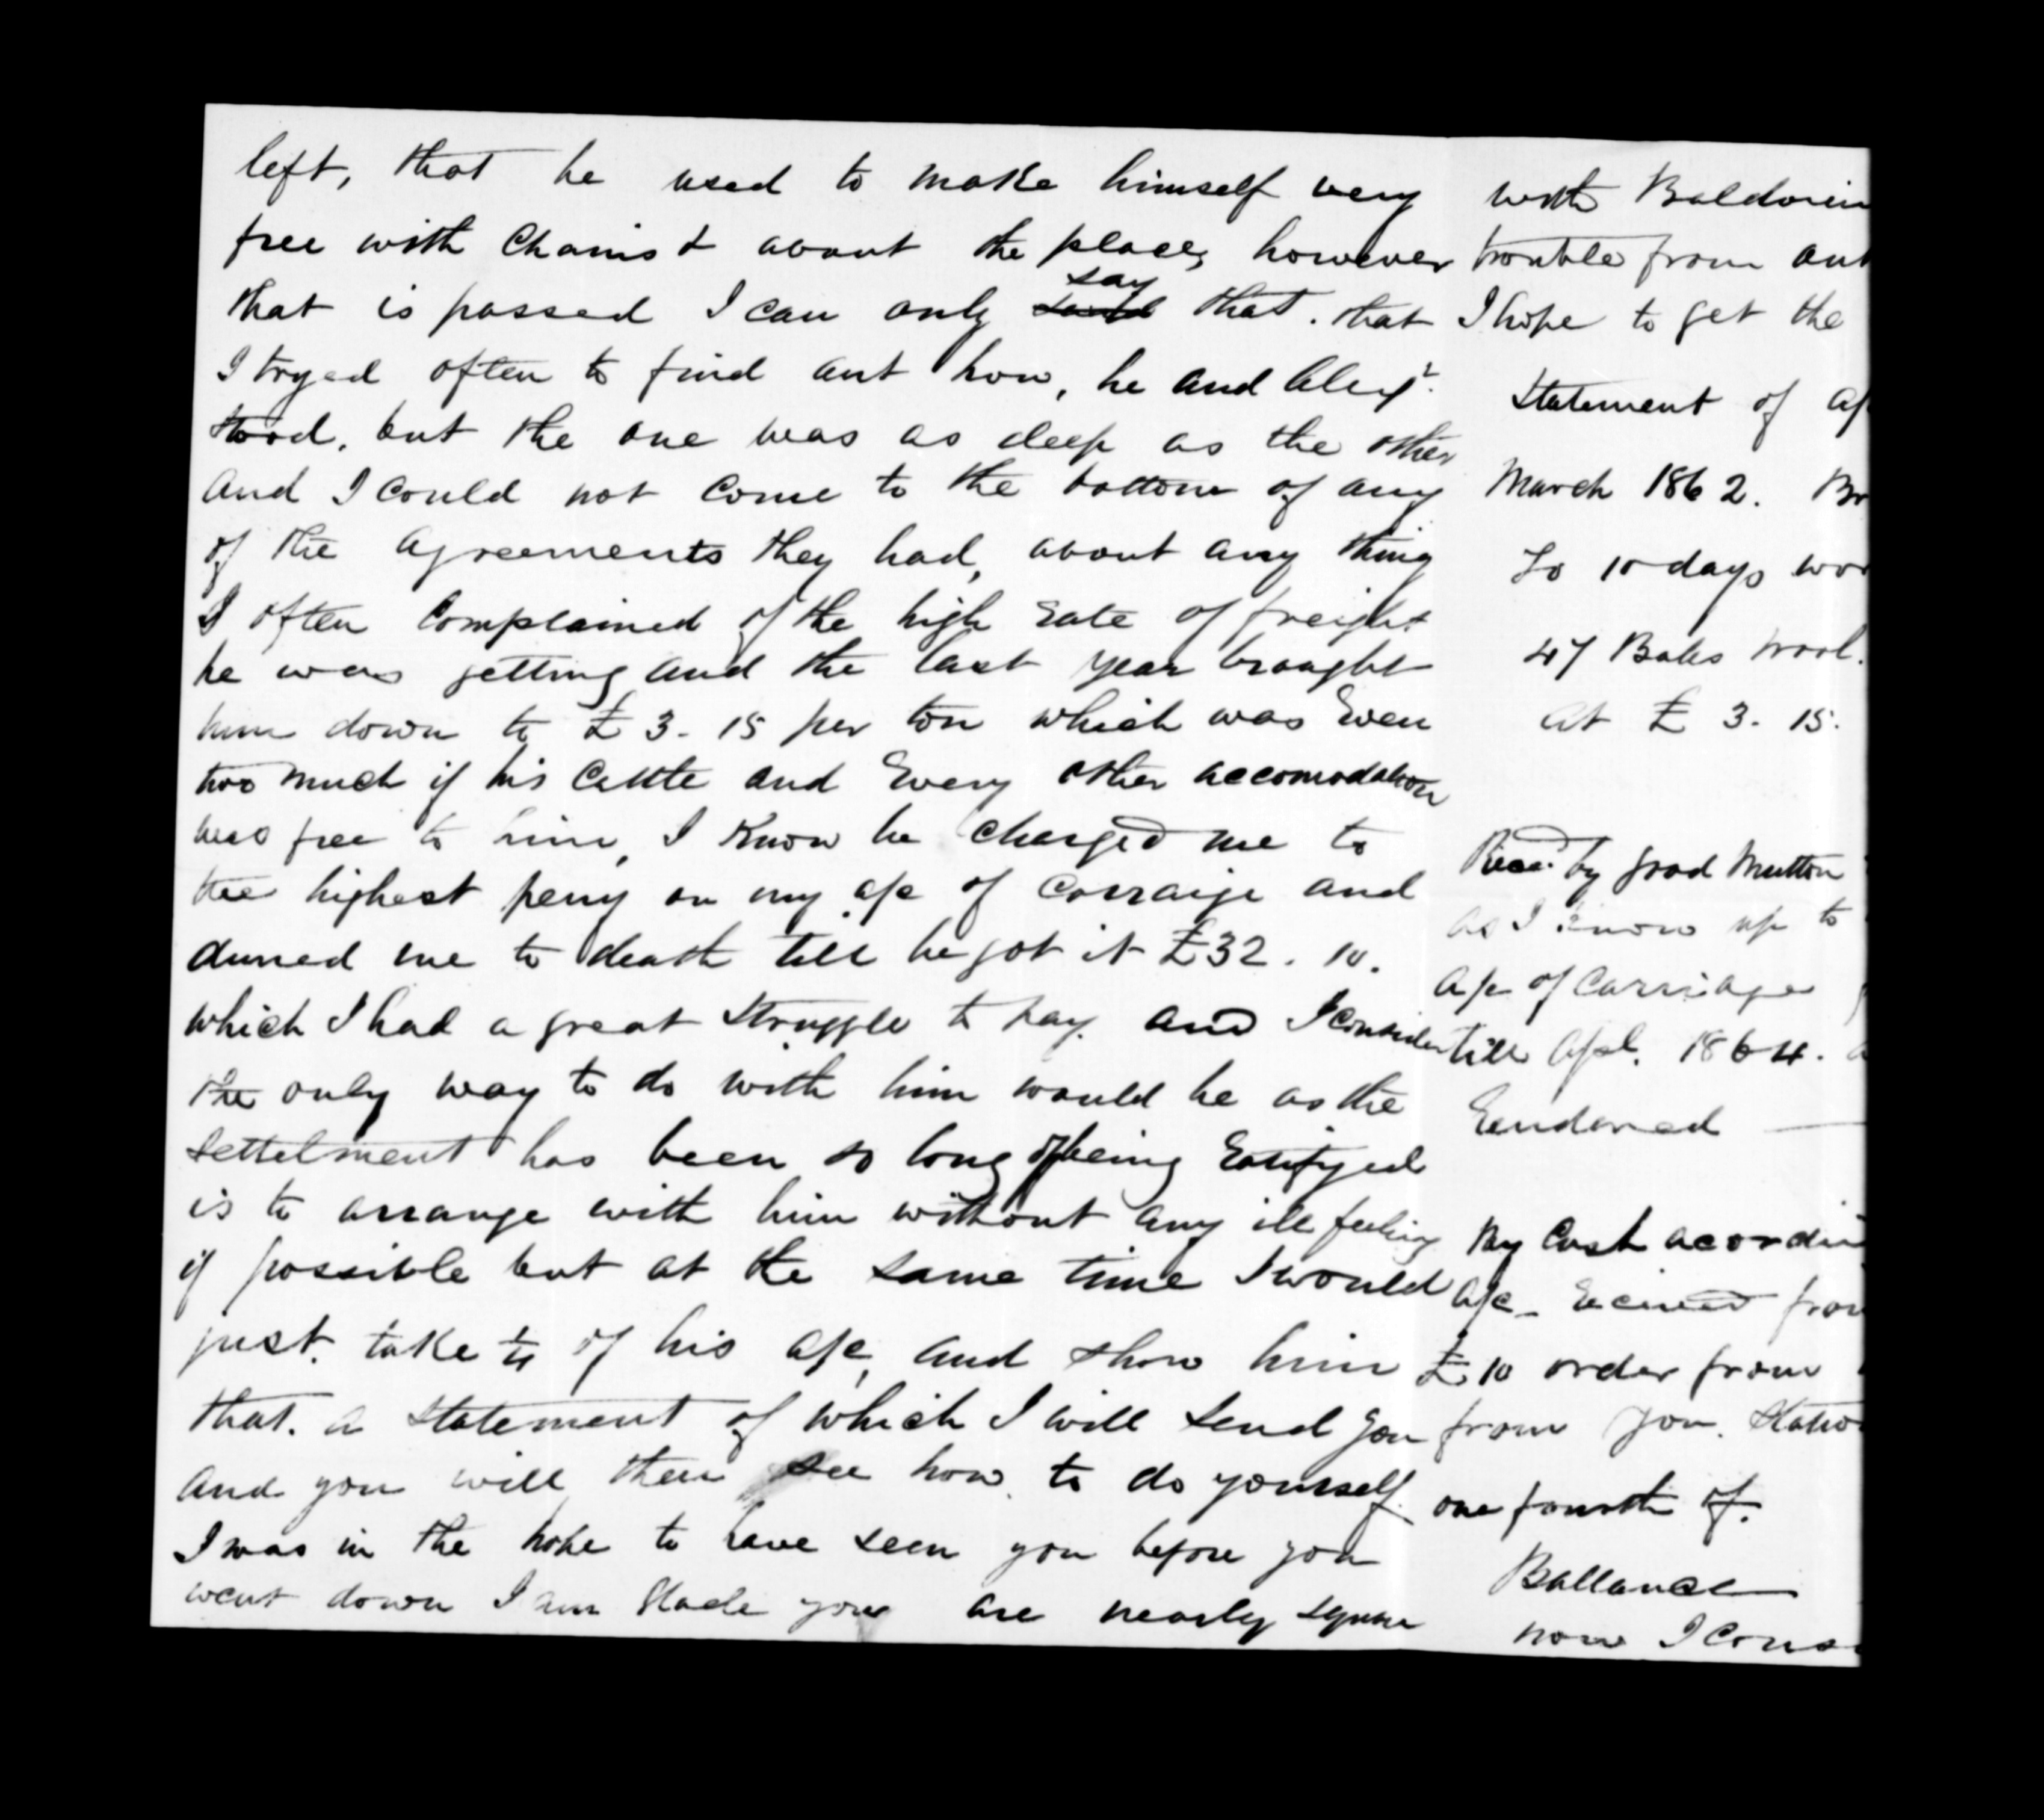 left, that he used to make himself very
free with Chains & about the place, however
that is passed I can only say that. that
I tryed often to find aut how, he and Alexr.
stood, but the one was as deep as the other
and I could not come to the bottom of any
of the agreements they had, about any thing
I often Complained of the high rate of freight
he was getting and the last year braught
him down to £3-15 per ton which was Even
too much if his Cattle and Every other accomodation
was free to him, I Know he charged me to
the highest peny on my a/c of Carraige and
duned me to death till he got it £32.10.
which I had a great struggle to pay. and I consider
the only way to do with him would be as the
settelment has been so long of being
is to arrange with him without any ill feeling
if possible but at the same time I would
just. take ¼ of his a/c, and show him
that. a statement of which I will send you
and you will then see how to do yourself.
I was in the hope to have seen you before you
went down I am Glade you are nearly square
with Baldwin
trouble from aut
I hope to get the
Statement of a/
March 1862. Br
To 10 days wor
47 Bales wool.
at £3.15.
Recd. by good Mutton
as I know up to
a/c of Carriage
till Apl. 1864. a
Rendered
By Cash acordin
a/c - Receved from
£10 order from
from you. Statio
one fourth of.
Ballance
now I Cons